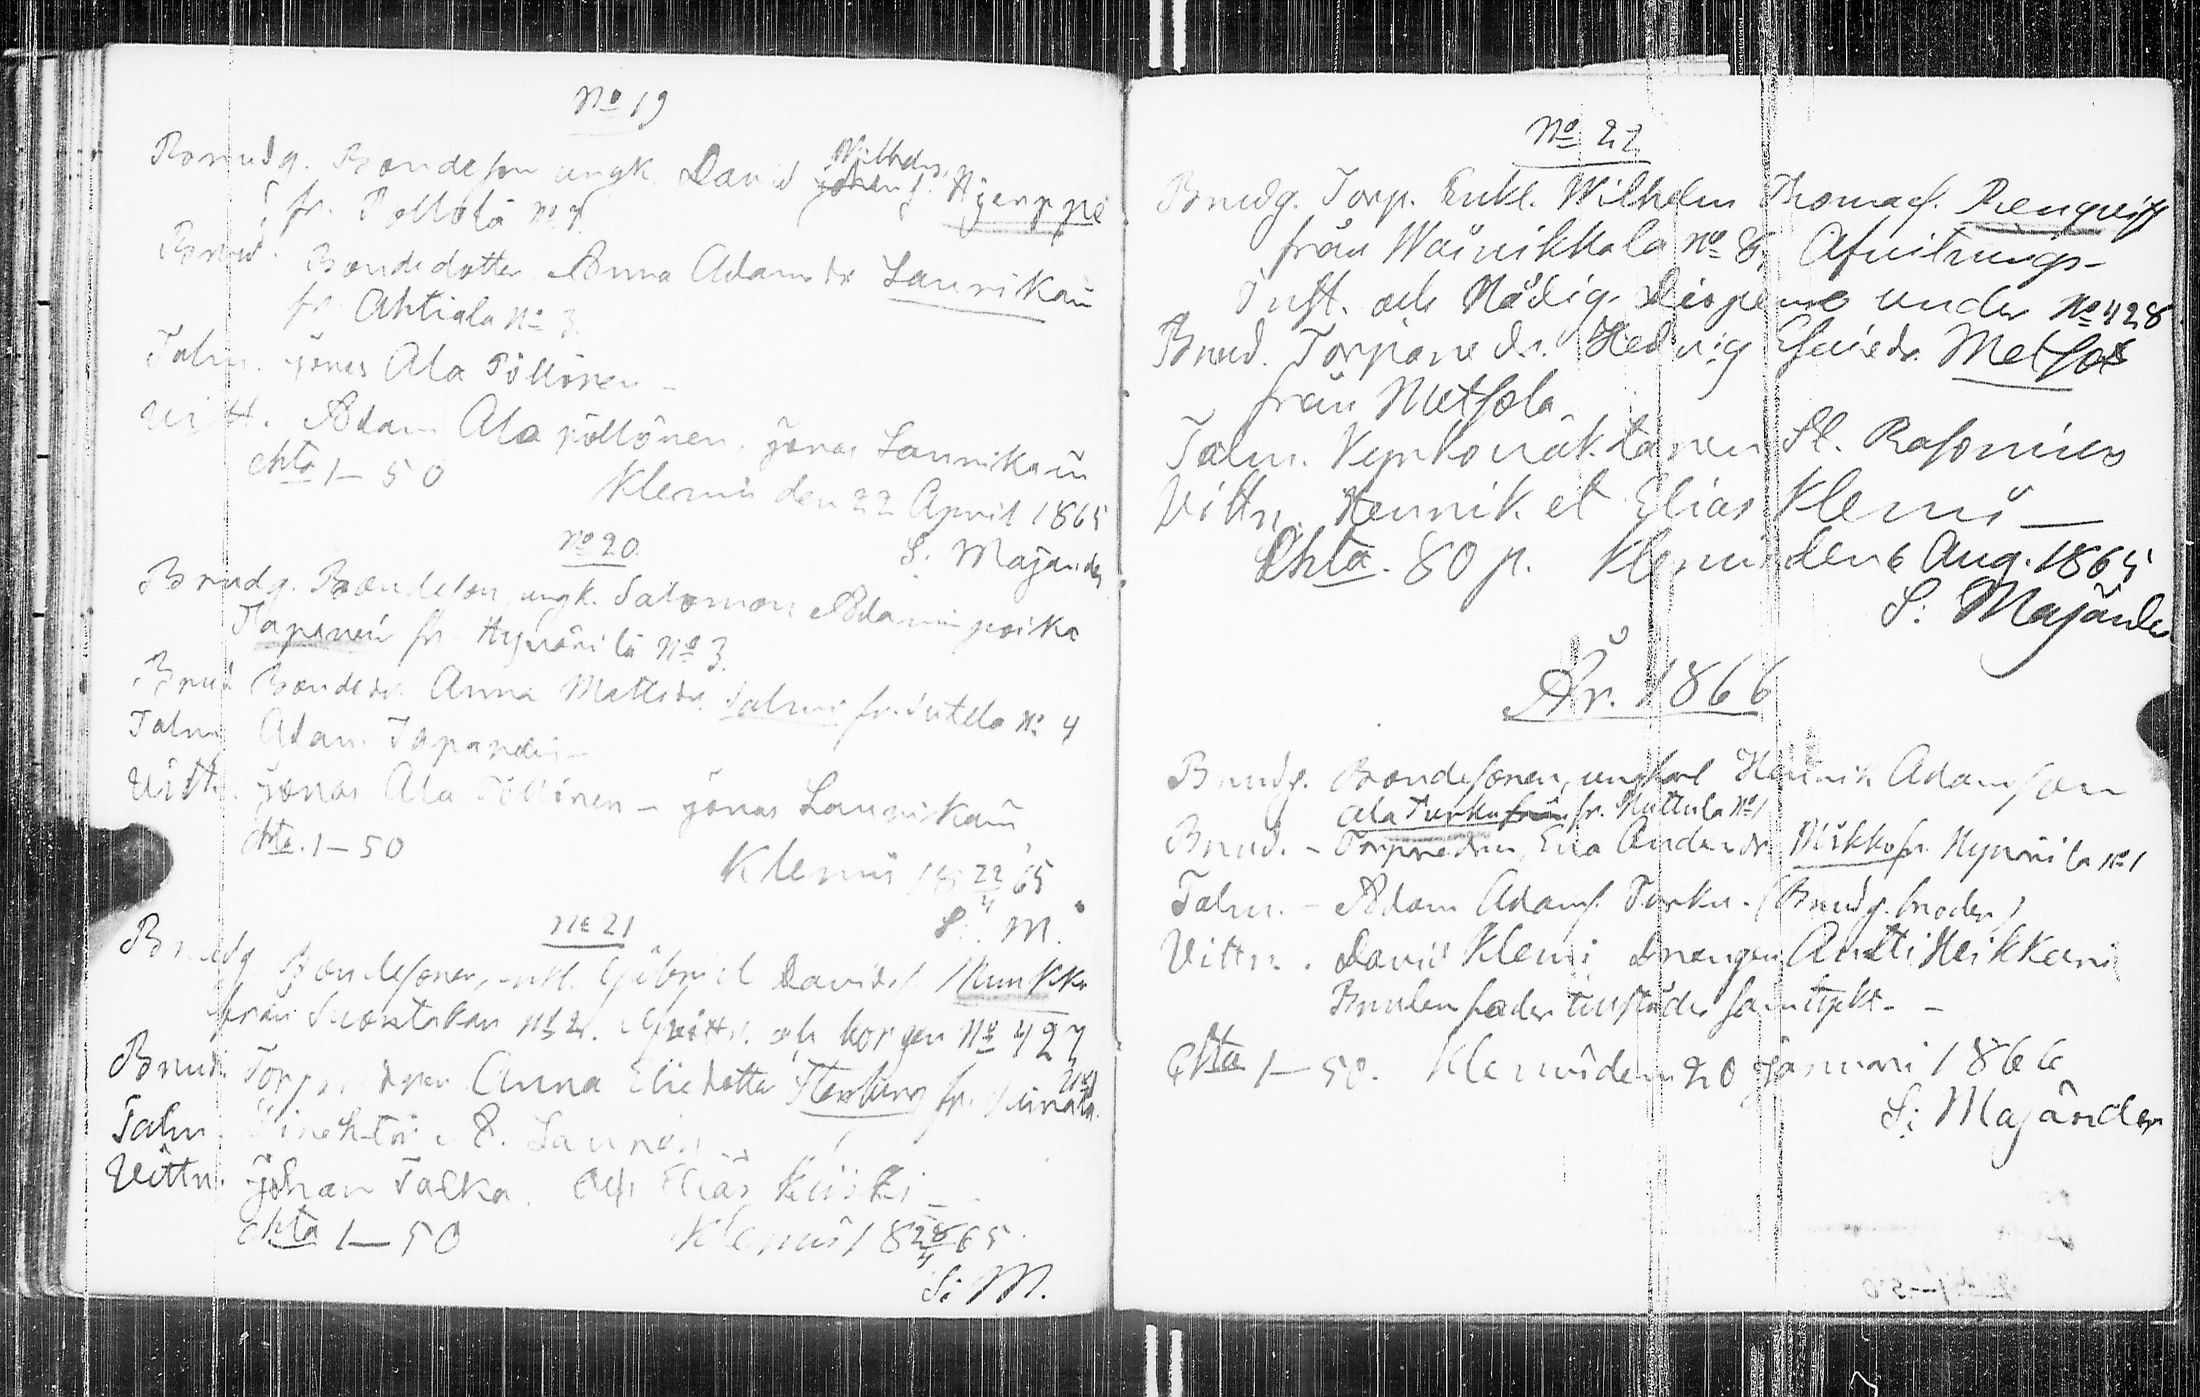 No 19
Brudg. Bondeson ungk. David Wilhelms. Hyerppe
fr. Pöllölä No 7.
Brud. Bondedotter Anna Adamsdr Laurikain
fr. Ahtiala No 3.
Talm. Jonas Ala Pöllönen –
Vitt. Adam Ala pöllönen, Jonas Laurikain
Ehta 1–50 Klemis den 22 April 1865
S. Majander
No 20.
Brudg. Bondeson, ungk. Salomon Adamin poika
Tapanein fr. Hynärilä No 3.
Brud Bondedr. Anna Mattsdr. Salmi fr. Sutela No 4
Talm Adam Tapanein –
Vitt. Jonas Ala Pöllönen – Jonas Laurikain
Ehta. 1–50
Klemis 18 22/4 65
S. M.
No 21
Brudg Bondesonen, enkl. Gabriel Davids. Munkka
från No 2. och borgen No 427
Brud. Anna Eliedotter fr. No 1
Talm. A. Launon –
Vittn. Johan Talka. och Elias Kiiski –
Ehta 1–50 Klemis 18 28/4 65.
S: M.
No 22
Brudg. Torp. Enkl. Wilhelm Thomas.
från Wäinikkala No 8, Afvitrings-
Inst. och Nådig. Dispens under No 428
Brud. Torparedr. Hedvig Metsola
från Metsola.
Talm. Kyrkovaktaren
Vittn. Henrik et Elias Klemi –
Ehta. 80 p. Klemis den 6 Aug. 1865
S: Majander
År. 1866
Brudg. Bondesonen, ungkarl Henrik Adamson
Ala Turku från fr. Muttula No 1
Brud. – Torparedr. Eva Andersdr. Mikko fr. Hynärilä No 1
Talm. – Adam Adams. Turku. (Brudg. broder)
Vittn. David Klemi, Drängen Antti Heikkeini
Brudens fader tillstädes samtyckt. –
Ehta 1–50. Klemis den 20 Januari 1866
S: Majander